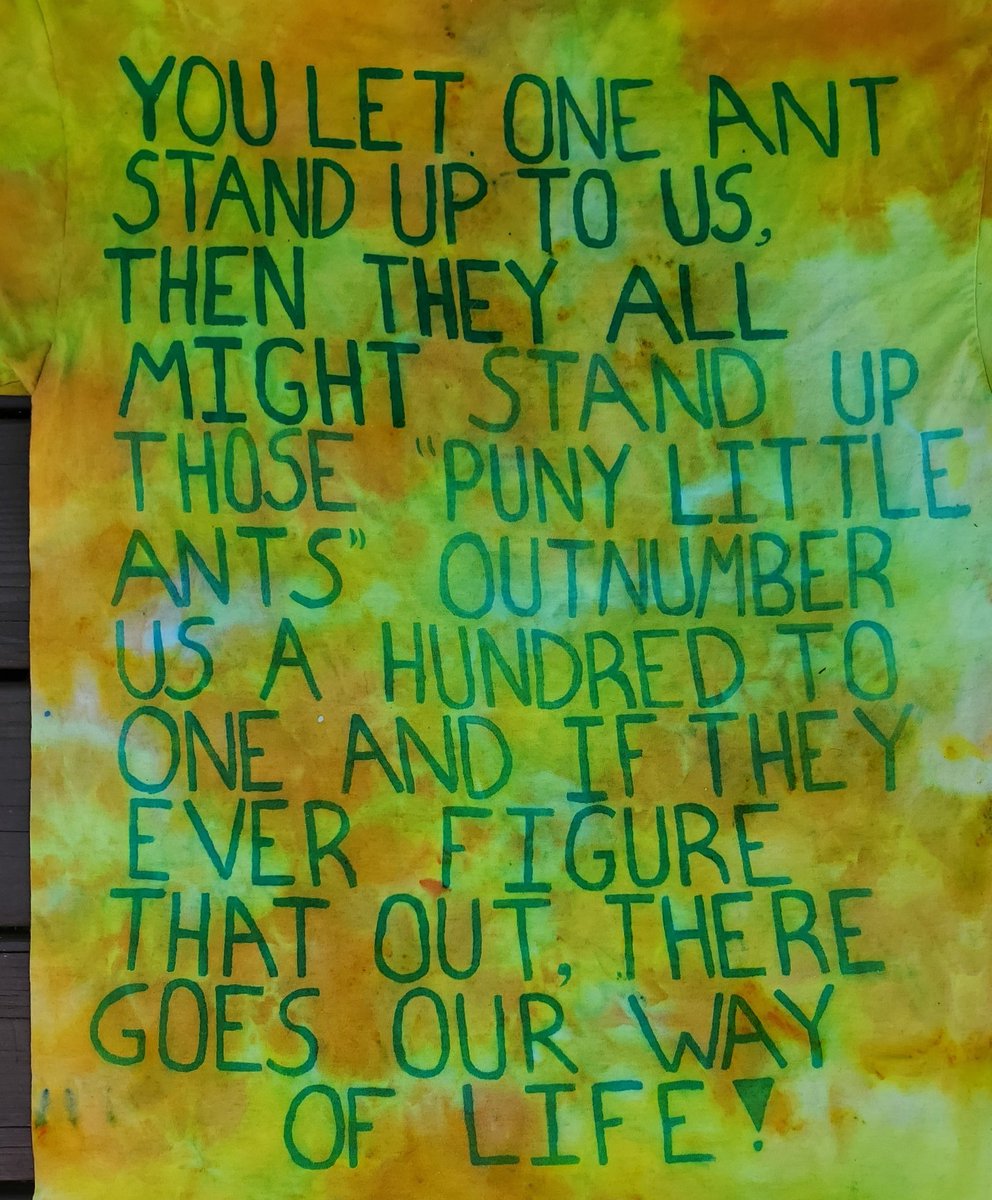 YOU LET ONE ANT
STAND UP TO US,
THEN THEY ALL
MIGHT STAND UP
THOSE “PUNY LITTLE
ANTS” OUTNUMBER
US A HUNDRED TO
ONE AND IF THEY
EVER FIGURE
THAT OUT, THERE
GOES OUR WAY
OF LIFE!